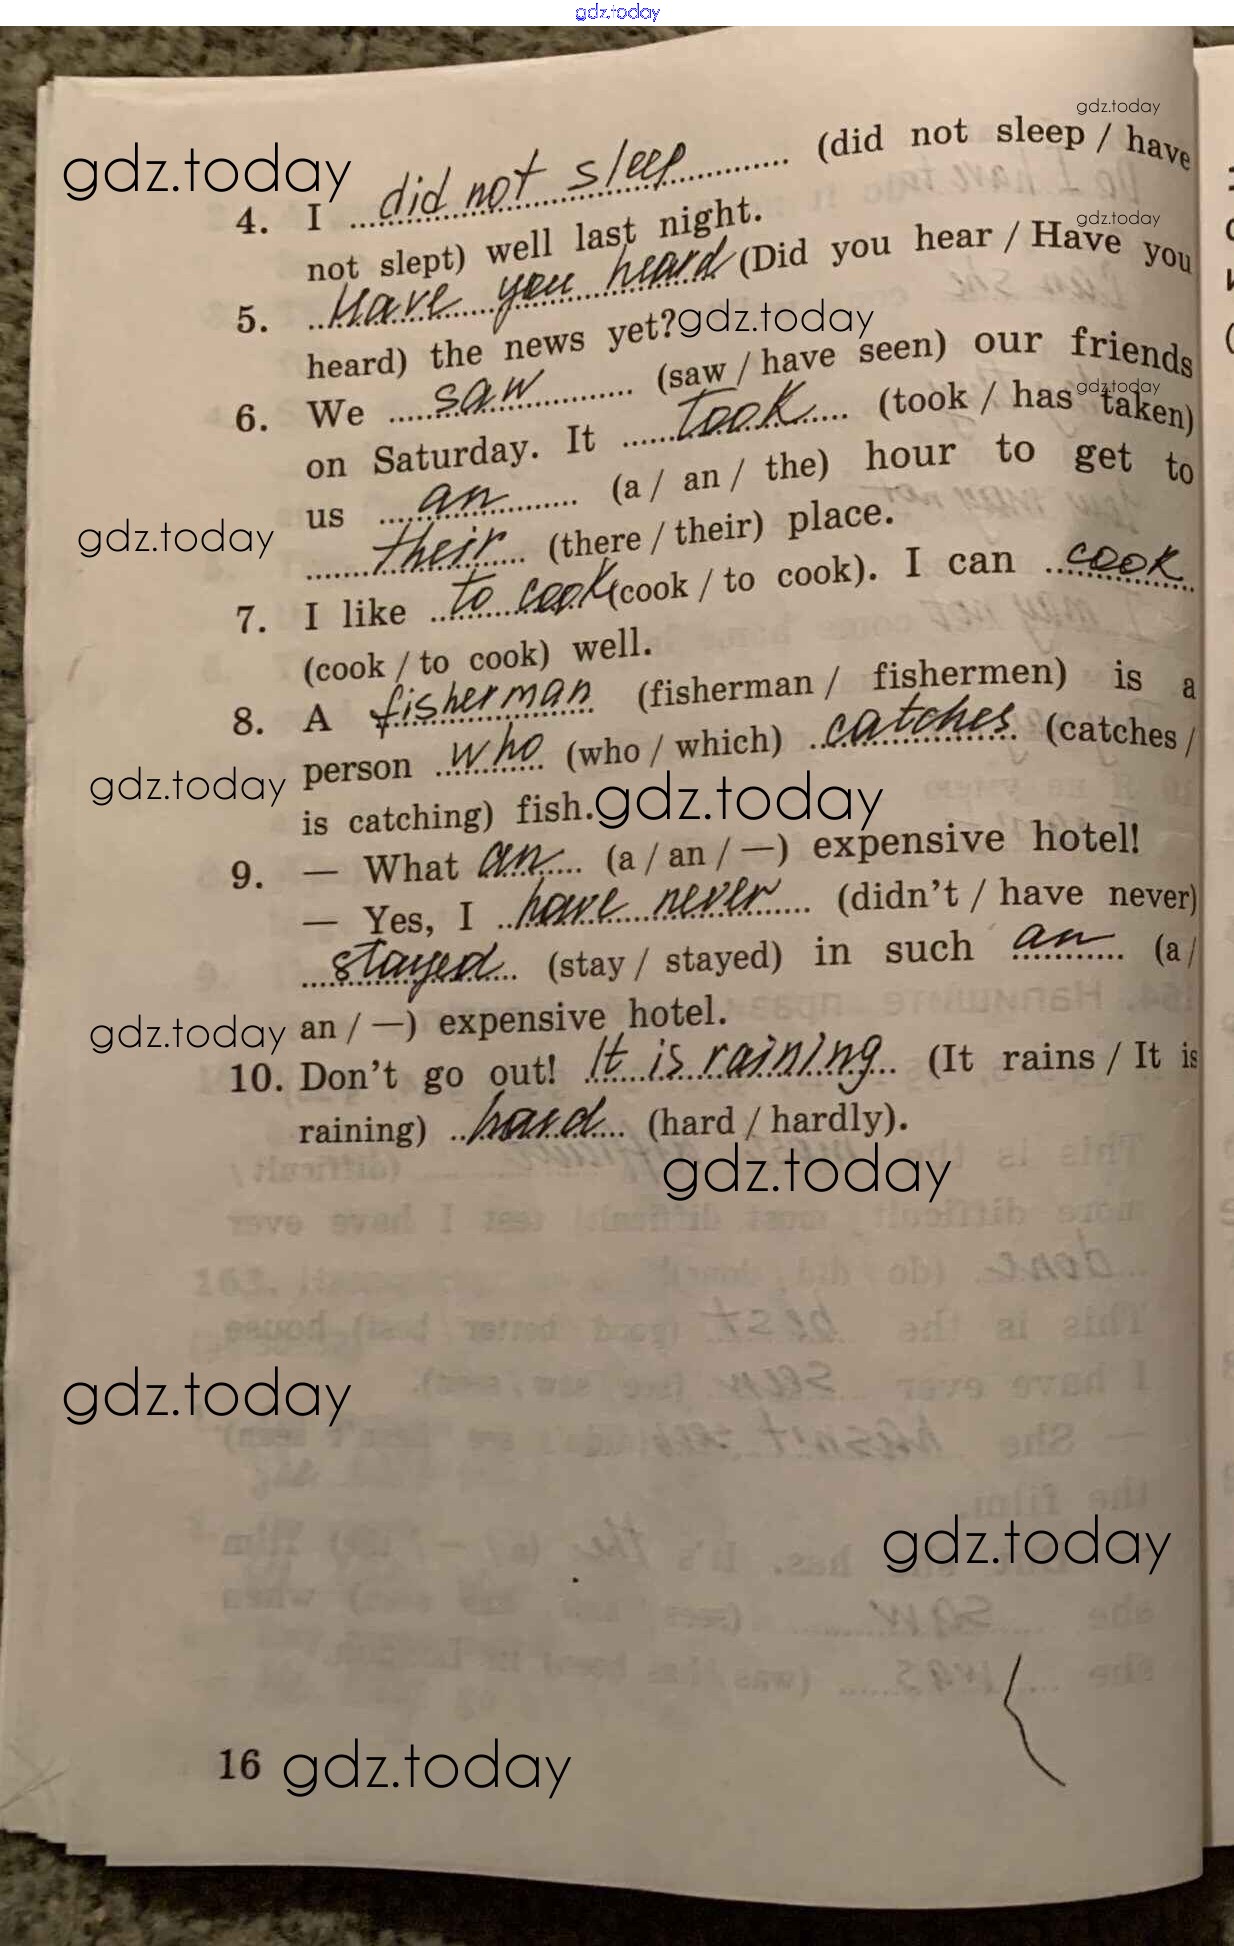 gdz.today
gdz.today
gdz.today
4. I did not sleep (did not sleep / have
not slept) well last night.
gdz.today
5. Have you heard (Did you hear / Have you
heard) the news yet?
gdz.today
6. We saw (saw / have seen) our friends
gdz.today
on Saturday. It took (took / has taken)
us an (a / an / the) hour to get to
gdz.today
their (there / their) place.
7. I like to cook (cook / to cook). I can cook
(cook / to cook) well.
8. A fisherman (fisherman / fishermen) is a
person who (who / which) catches (catches /
gdz.today
is catching) fish.
gdz.today
9. — What an (a / an / —) expensive hotel!
— Yes, I have never (didn't / have never)
stayed (stay / stayed) in such an (a /
gdz.today
an / —) expensive hotel.
10. Don't go out! It is raining (It rains / It is
raining) hard (hard / hardly).
gdz.today
gdz.today
gdz.today
16
gdz.today